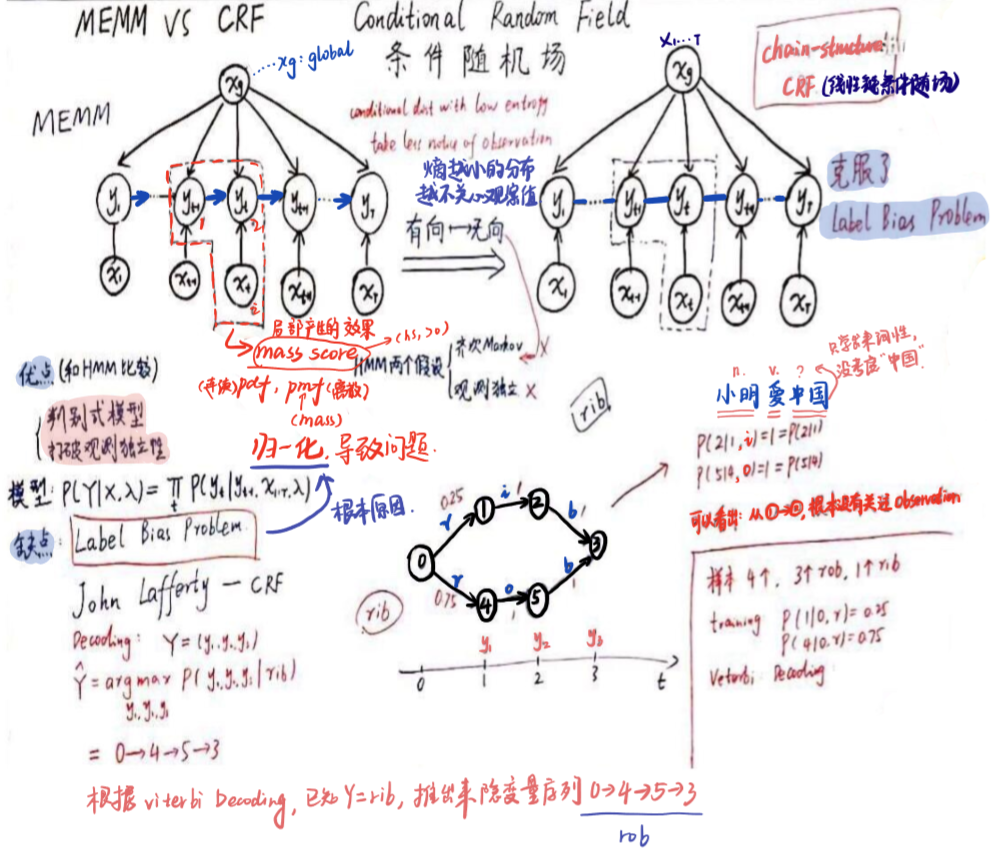 MEMM VS CRF
Conditional Random Field
条件随机场
MEMM
xg
xg: global
conditional dist with low entropy
take less notice of observation
熵越小的分布
越不关心观察值
有向→无向
y1
yt-1
yt
yt+1
yT
1
2
x1
xt-1
xt
xt+1
xT
x1...T
xg
chain-structure
CRF (线性链条件随机场)
y1
yt-1
yt
yt+1
yT
x1
xt-1
xt
xt+1
xT
克服了
Label Bias Problem
局部产生的效果
mass score
(连续) pdf, pmf (离散)
(mass)
归一化, 导致问题.
HMM两个假设
齐次Markov ×
观测独立 ×
优点 (和HMM比较)
判别式模型
打破观测独立性
模型: P(Y|X,λ) = ∏t P(yt|yt-1, x1:T, λ)
根本原因.
缺点: Label Bias Problem.
John Lafferty — CRF
Decoding: Y=(y1,y2,y3)
Ŷ = argmax P(y1,y2,y3|rib)
y1,y2,y3
= 0→4→5→3
rib
0.25
r
1
i
1
2
b
1
3
0
r
0.75
4
o
1
5
b
1
rib
y1
y2
y3
0
1
2
3
t
只学出来词性,
没考虑"中国".
n. v. ?
小明 爱 中国
P(2|1,i)=1=P(2|1)
P(5|4,o)=1=P(5|4)
可以看出: 从①→②, 根本没有关注observation
样本 4个, 3个rob, 1个rib
training P(1|0,r)=0.25
P(4|0,r)=0.75
Veterbi Decoding
根据 viterbi Decoding, 已知Y=rib, 推出来隐变量序列 0→4→5→3
rob